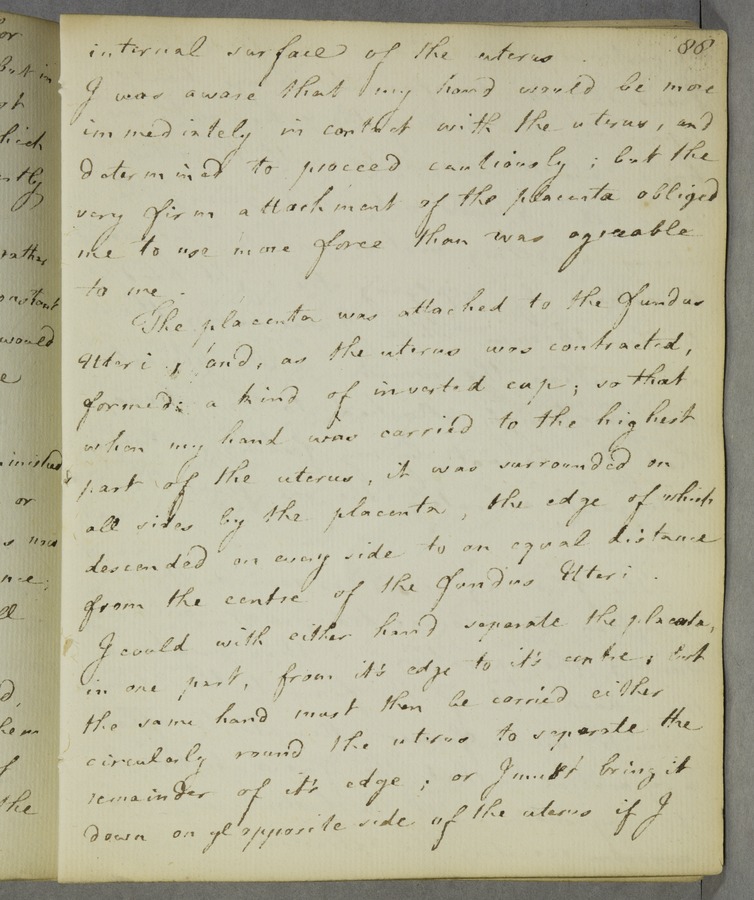 88
internal surface of the uterus.
I was aware that my hand would be more
immediately in contact with the uterus, and
determined to proceed cautiously; but the
very firm attachment of the placenta obliged
me to use more force than was agreeable
to me.
The placenta was attached to the fundus
Uteri, and, as the uterus was contracted,
formed a kind of inverted cup; so that
when my hand was carried to the highest
part of the uterus, it was surrounded on
all sides by the placenta, the edge of which
descended on every side to an equal distance
from the centre of the fundus Uteri.
I could with either hand separate the placenta,
in one part, from it's edge to it's centre; but
the same hand must then be carried either
circularly round the uterus to separate the
remainder of it's edge; or I must bring it
down on ye opposite side of the uterus if I
or
but in
ot
hich
ntly
rather
onstant
would
e
inished
or
s
ne;
ll
d,
hem
f
the